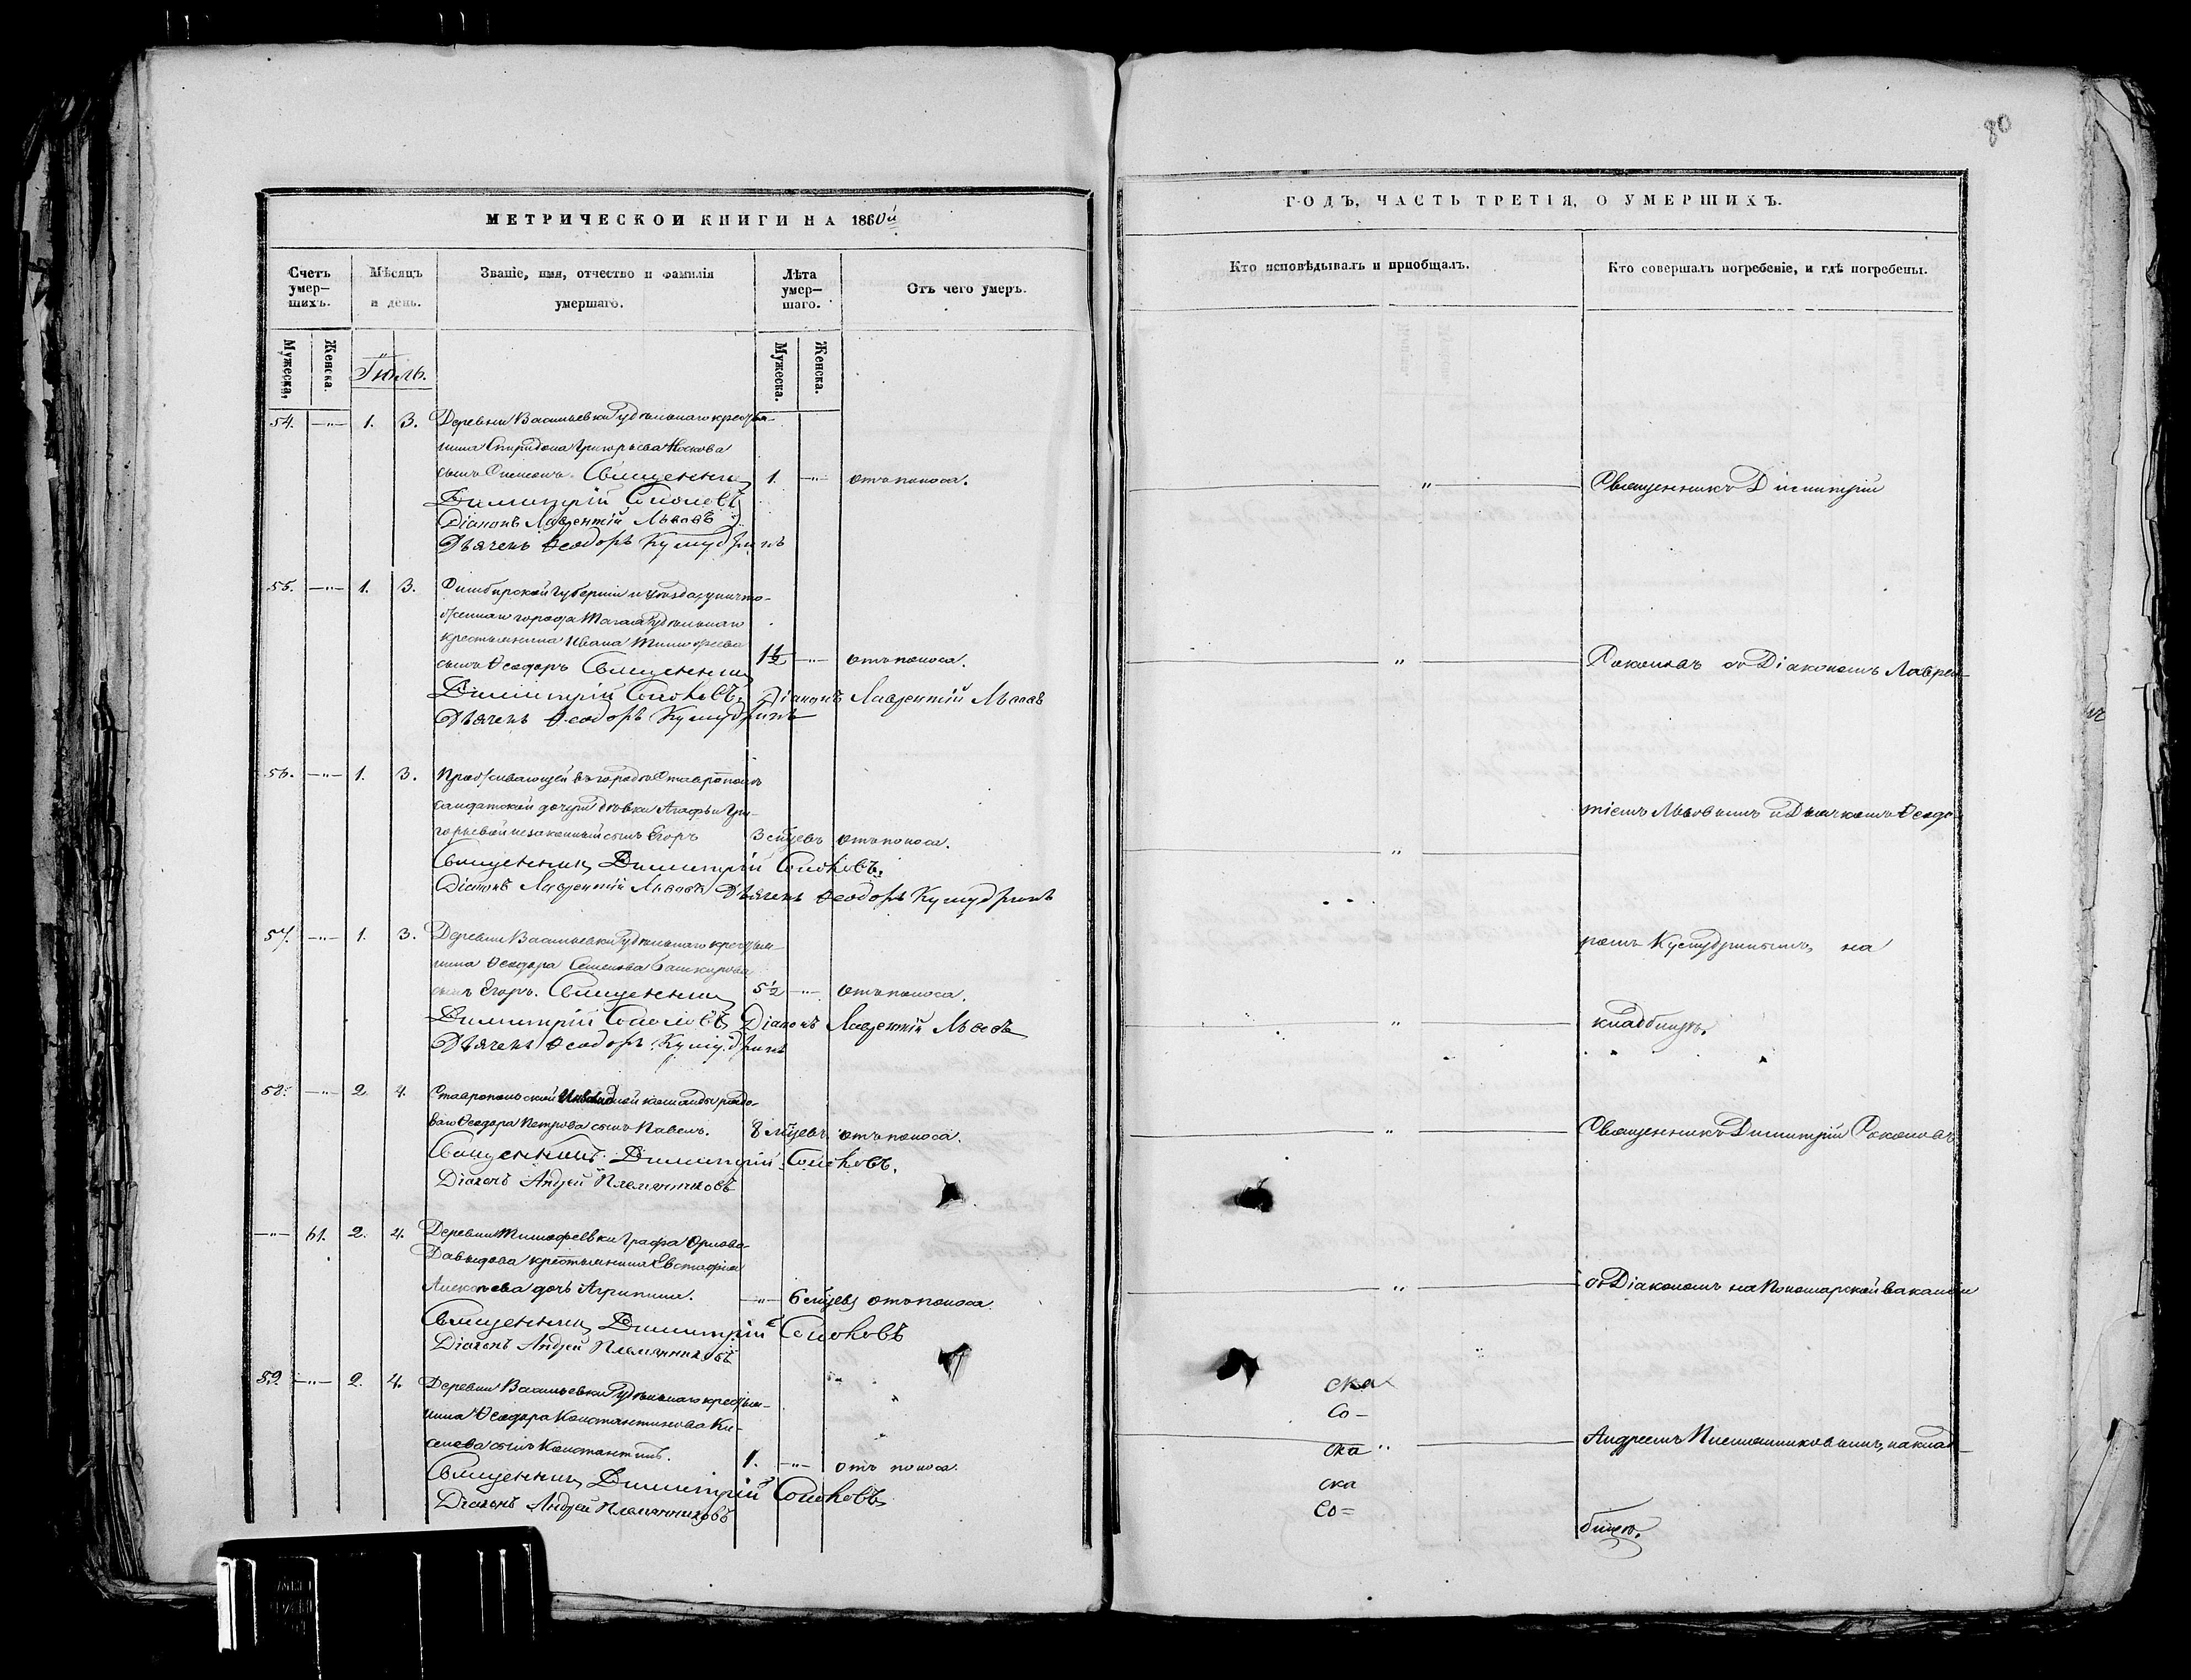 80
МЕТРИЧЕСКОЙ КНИГИ НА 1860й
Счетъ умер-шихъ.
Мѣсяцъ и день.
Званіе, имя, отчество и фамилія умершаго.
Лѣта умер-шаго.
Отъ чего умеръ.
Мужеска.
Женска.
Іюль.
Мужеска.
Женска.
54. —"— 1. 3. Деревни Васильевки Удѣльнаго крестья-
нина Спиридона Григорьева Носкова
сынъ Симеонъ. Священникъ 1. —"— отъ поноса.
Димитрій Соколовъ
Діаконъ Лаврентій Львовъ
Дьячекъ Ѳеодоръ Кумудринъ
55. —"— 1. 3. Симбирской Губерніи и уѣзда, уничто-
женнаго города Тагая Удѣльнаго
крестьянина Ивана Тимофеева
сынъ Ѳеодоръ Священникъ 1½ —"— отъ поноса.
Димитрій Соколовъ. Діаконъ Лаврентій Львовъ
Дьячекъ Ѳеодоръ Кумудринъ
56. —"— 1. 3. Проживающей въ городѣ Ставрополѣ
солдатской дочери дѣвки Агафьи Гри-
горьевой незаконный сынъ Егоръ 3 мцевъ отъ поноса.
Священникъ Димитрій Соколовъ.
Діаконъ Лаврентій Львовъ Дьячекъ Ѳеодоръ Кумудринъ
57. —"— 1. 3. Деревни Васильевки Удѣльнаго крестьян-
нина Ѳеодора Семенова Башкирова
сынъ Егоръ. Священникъ 5½ —"— отъ поноса.
Димитрій Соколовъ Діаконъ Лаврентій Львовъ
Дьячекъ Ѳеодоръ Кумудринъ
58. —"— 2 4. Ставропольской Инвалидной команды рядо-
ваго Ѳеодора Петрова сынъ Павелъ. 8 мцевъ отъ поноса.
Священникъ Димитрій Соколовъ.
Діаконъ Андрей Племянниковъ
—"— 61. 2. 4. Деревни Тимофеевки Графа Орлова-
Давыдова крестьянина Евстафія
Алексѣева дочь Агрипина. —"— 6 мцевъ отъ поноса.
Священникъ Димитрій Соколовъ
Діаконъ Андрей Племянниковъ
59. —"— 2. 4. Деревни Васильевки Удѣльнаго крестьян-
нина Ѳеодора Константинова Ки-
селева сынъ Константинъ. 1. —"— отъ поноса.
Священникъ Димитрій Соколовъ
Діаконъ Андрей Племянниковъ
ГОДЪ, ЧАСТЬ ТРЕТІЯ, О УМЕРШИХЪ.
Кто исповѣдывалъ и пріобщалъ.
Кто совершалъ погребеніе, и гдѣ погребены.
" Священникъ Димитрій
" Соколовъ съ Діакономъ Лаврен-
тіемъ Львовымъ и Дьячкомъ Ѳеодо-
"
ромъ Кумудринымъ, на
" кладбищѣ.
" Священникъ Димитрій Соколовъ
" съ Діакономъ на Пономарской вакансіи
ска
Со-
ска " Андреемъ Племянниковымъ, на клад-
ска
Со=
бищѣ.